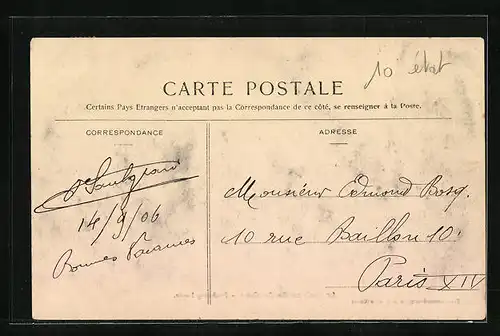 10 état
CARTE POSTALE
Certains Pays Etrangers n'acceptant pas la Correspondance de ce côté, se renseigner à la Poste.
CORRESPONDANCE
ADRESSE
14/9/06
Bonnes
Monsieur Edmond Bosq.
10 rue Baillon 10.
Paris XIV